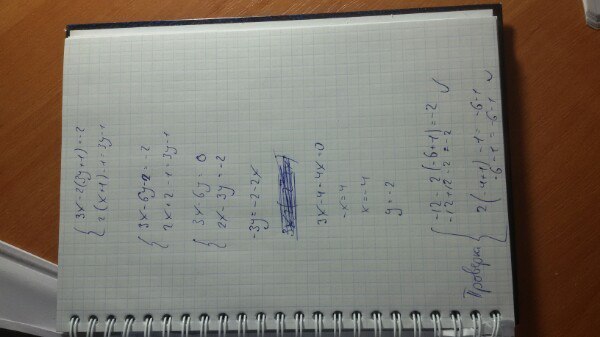 3x-2(3y+1)=-2
2(x+1)-1=3y-1
3x-6y-2=-2
2x+2-1=3y-1
3x-6y=0
2x-3y=-2
-3y=-2-2x
3x-4-4x=0
-x=4
x=-4
y=-2
Проверка
-12-2(-6+1)=-2
-12+12-2=-2
2(-4+1)-1=-6-1
-6-1=-6-1